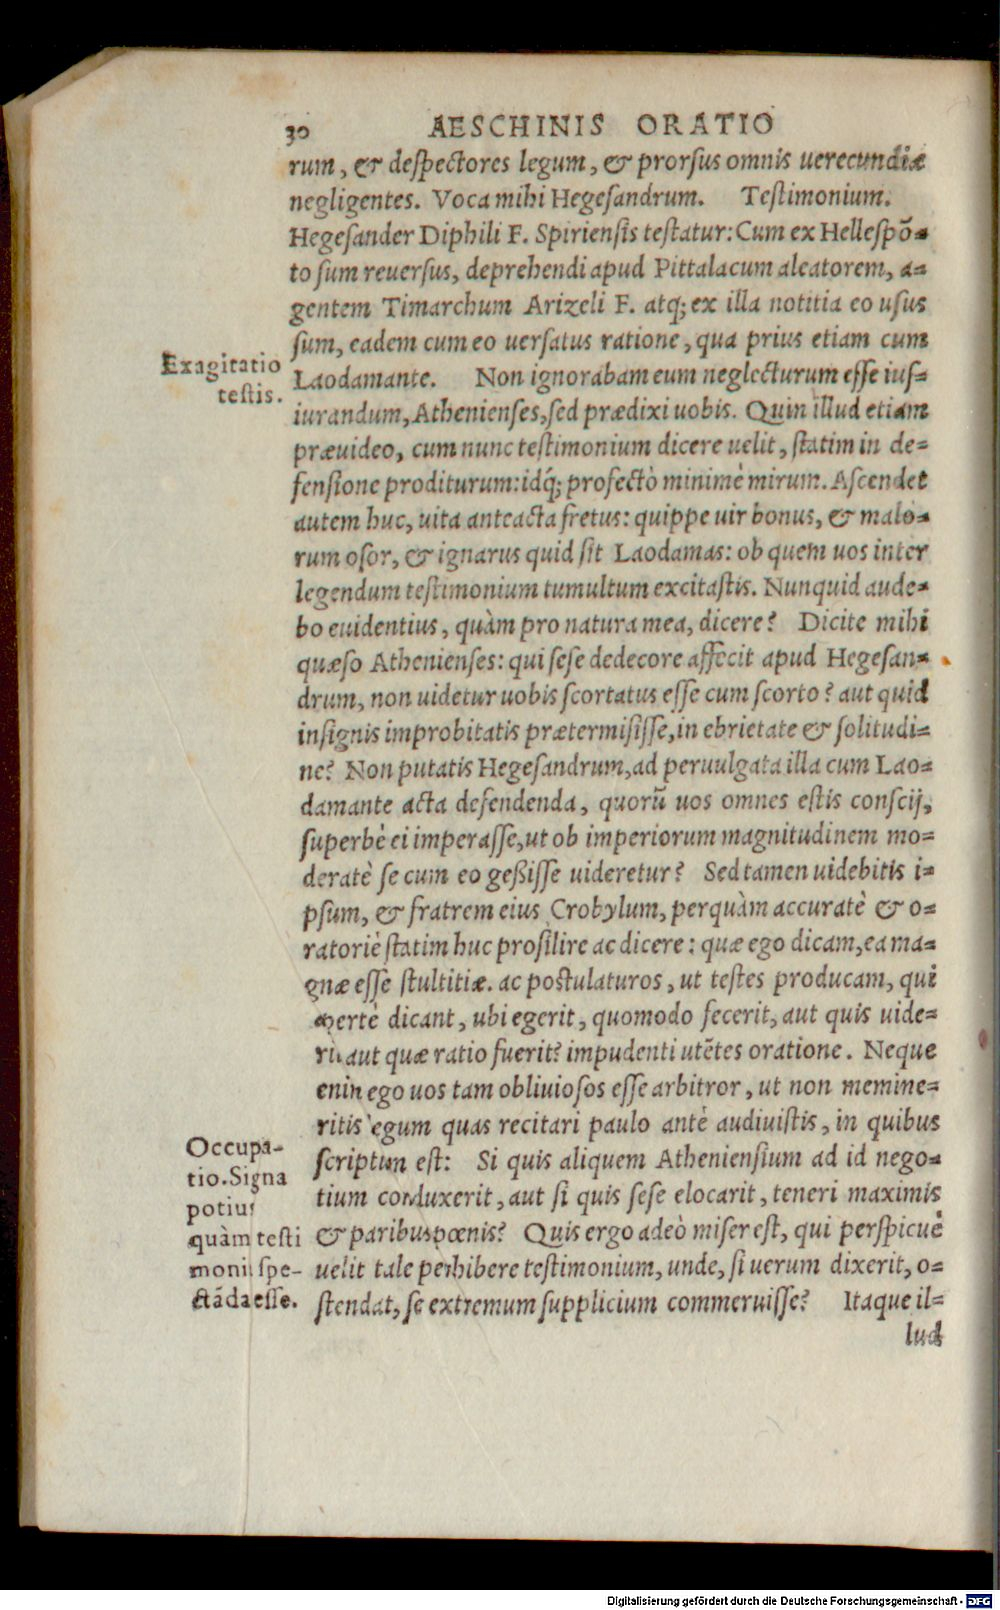 30 AESCHINIS ORATIO
rum, & despectores legum, & prorsus omnis uerecundiæ
negligentes. Voca mihi Hegesandrum. Testimonium.
Hegesander Diphili F. Spiriensis testatur: Cum ex Hellespõ-
to sum reuersus, deprehendi apud Pittalacum aleatorem, a-
gentem Timarchum Arizeli F. atq; ex illa notitia eo usus
sum, eadem cum eo uersatus ratione, qua prius etiam cum
Exagitatio
testis.
Laodamante. Non ignorabam eum neglecturum esse ius-
iurandum, Athenienses, sed prædixi uobis. Quin illud etiam
præuideo, cum nunc testimonium dicere uelit, statim in de-
fensione proditurum: idq́; profectò minimè mirum. Ascendet
autem huc, uita anteacta fretus: quippe uir bonus, & malo-
rum osor, & ignarus quid sit Laodamas: ob quem uos inter
legendum testimonium tumultum excitastis. Nunquid aude-
bo euidentius, quàm pro natura mea, dicere? Dicite mihi
quæso Athenienses: qui sese dedecore affecit apud Hegesan-
drum, non uidetur uobis scortatus esse cum scorto? aut quid
insignis improbitatis prætermisisse, in ebrietate & solitudi-
ne? Non putatis Hegesandrum, ad peruulgata illa cum Lao-
damante acta defendenda, quorũ uos omnes estis conscij,
superbè ei imperasse, ut ob imperiorum magnitudinem mo-
deratè se cum eo geßisse uideretur? Sed tamen uidebitis i-
psum, & fratrem eius Crobylum, perquàm accuratè & o-
ratoriè statim huc prosilire ac dicere: quæ ego dicam, ea ma-
gnæ esse stultitiæ. ac postulaturos, ut testes producam, qui
apertè dicant, ubi egerit, quomodo fecerit, aut quis uide-
rit aut quæ ratio fuerit? impudenti utẽtes oratione. Neque
enim ego uos tam obliuiosos esse arbitror, ut non memine-
ritis legum quas recitari paulo antè audiuistis, in quibus
Occupa-
tio. Signa
potius
quàm testi
monii spe-
ctãda esse.
scriptum est: Si quis aliquem Atheniensium ad id nego-
tium conduxerit, aut si quis sese elocarit, teneri maximis
& paribus pœnis? Quis ergo adeò miser est, qui perspicuè
uelit tale perhibere testimonium, unde, si uerum dixerit, o-
stendat, se extremum supplicium commeruisse? Itaque il-
lud
Digitalisierung gefördert durch die Deutsche Forschungsgemeinschaft - DFG